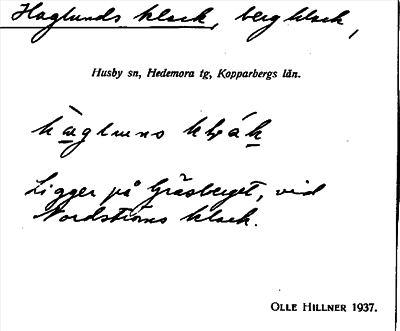 Haglunds klack, bergklack,
Husby sn, Hedemora tg, Kopparbergs län.
Ligger på Gråsberget, vid
Nordströms klack.
OLLE HILLNER 1937.